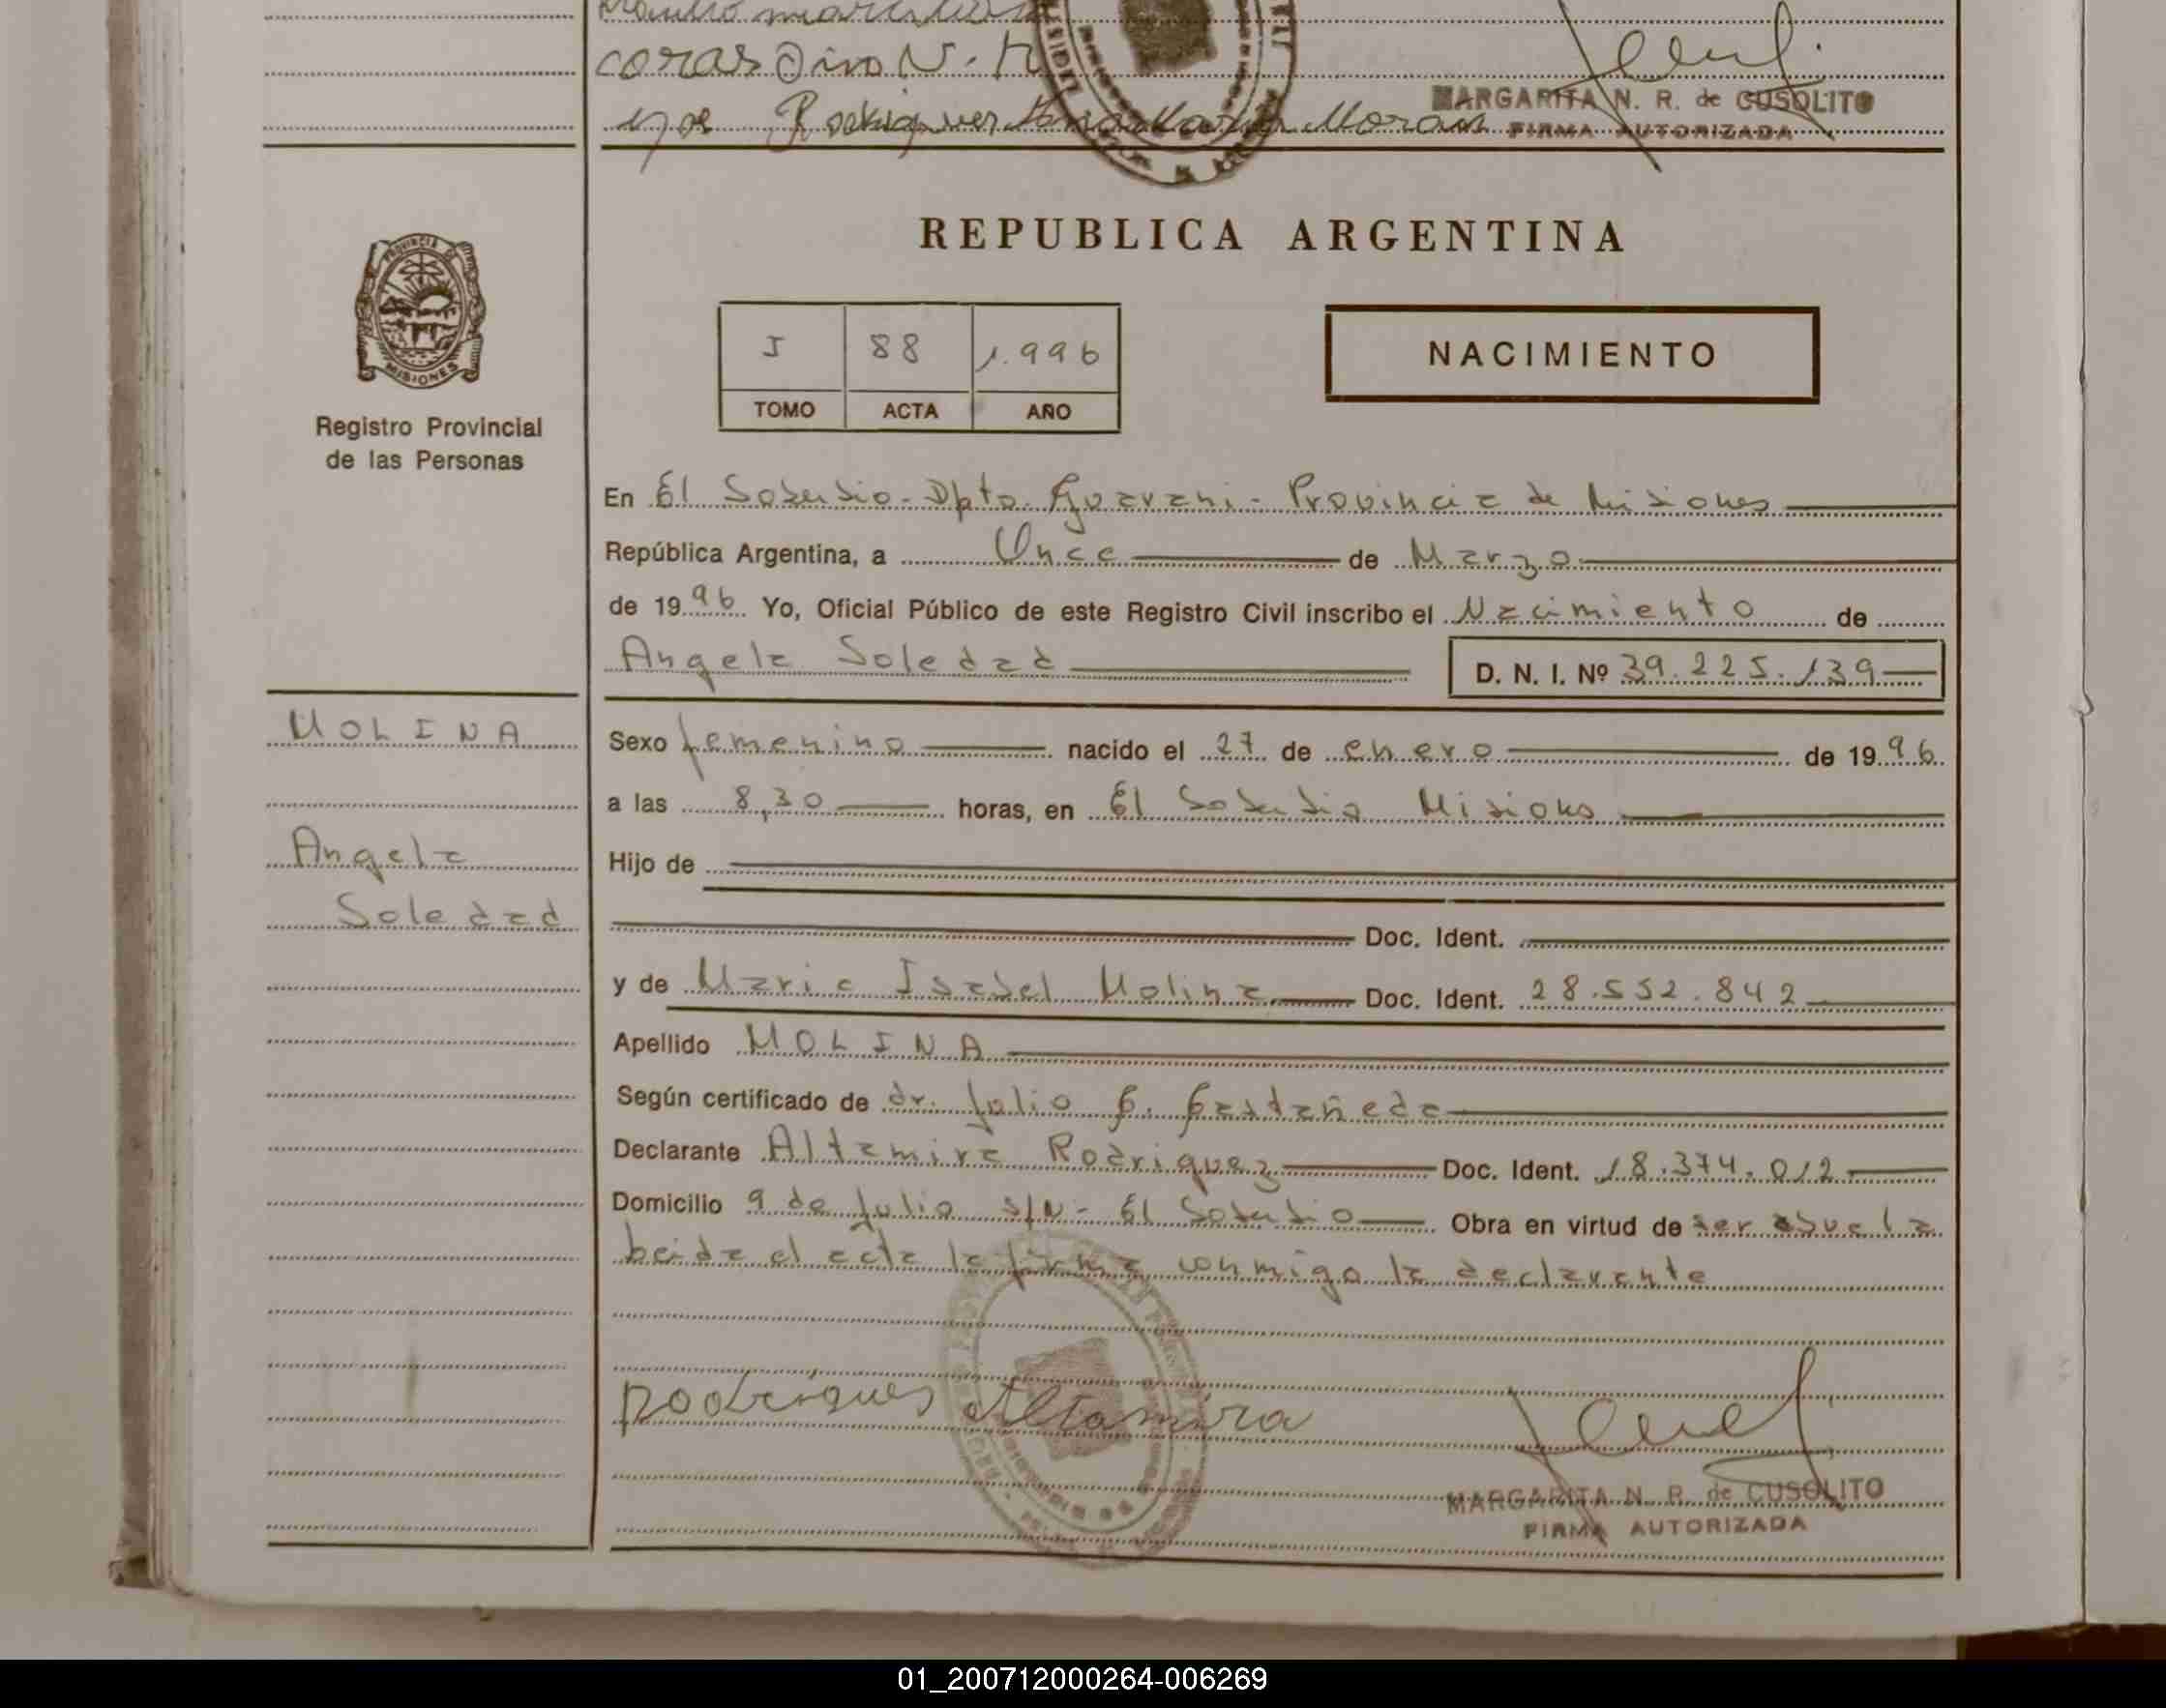 coras
Rodriguez Moran
MARGARITA N. R. de CUSOLITO
FIRMA AUTORIZADA
REPUBLICA ARGENTINA
PROVINCIA DE
MISIONES
I 88 1.996
TOMO ACTA AÑO
NACIMIENTO
Registro Provincial
de las Personas
En El Soberbio - Dpto. Guarani - Provincia de Misiones
República Argentina, a Once de Marzo
de 1996 Yo, Oficial Público de este Registro Civil inscribo el Nacimiento de
Angela Soledad D. N. I. Nº 39.225.139
MOLINA
Angela
Soledad
Sexo femenino nacido el 27 de enero de 1996
a las 8,30 horas, en El Soberbio Misiones
Hijo de
Doc. Ident.
y de Maria Isabel Molina Doc. Ident. 28.552.842
Apellido MOLINA
Según certificado de dr. Julio C. Castañeda
Declarante Altamira Rodriguez Doc. Ident. 18.374.012
Domicilio 9 de Julio S/N - El Soberbio Obra en virtud de ser abuela
Leida el acta la firma conmigo la declarante
Rodrigues Altamira
MARGARITA N. R. de CUSOLITO
FIRMA AUTORIZADA
01_200712000264-006269